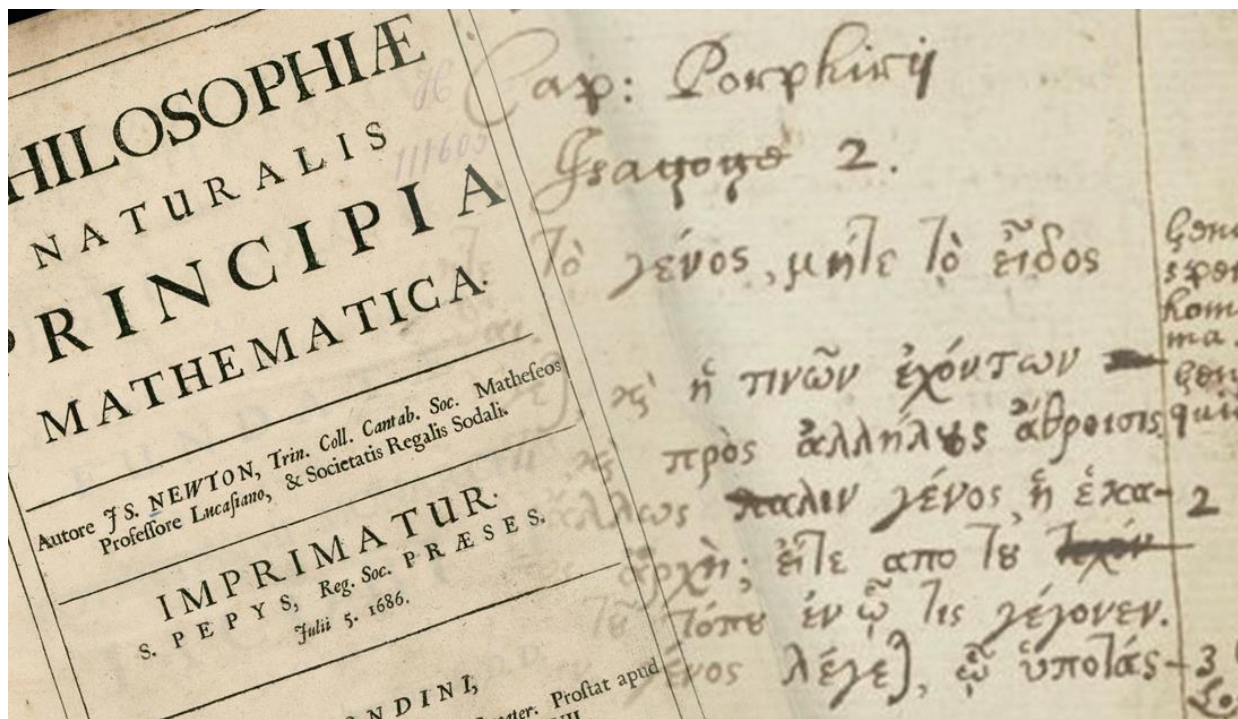 HILOSOPHIÆ
NATURALIS
PRINCIPIA
MATHEMATICA.
Autore JS. NEWTON, Trin. Coll. Cantab. Soc. Matheſeos
Profeſſore Lucaſiano, & Societatis Regalis Sodali.
IMPRIMATUR.
S. PEPYS, Reg. Soc. PRÆSES.
Julii 5. 1686.
NDINI,
Proſtat apud
111603
Cap: Porphirij
2.
Τὸ γένος, μήτε τὸ εἶδος
ἢ τινῶν ἐχόντων
πρὸς ἀλλήλους ἄθροισις
γένος ἢ ἑκα- 2
ἀρχὴ; εἴτε απο τȣ
τόπȣ ἐν ᾧ τις γέγονεν.
γένος λέγε), ᾧ ὑποτάσ- 3